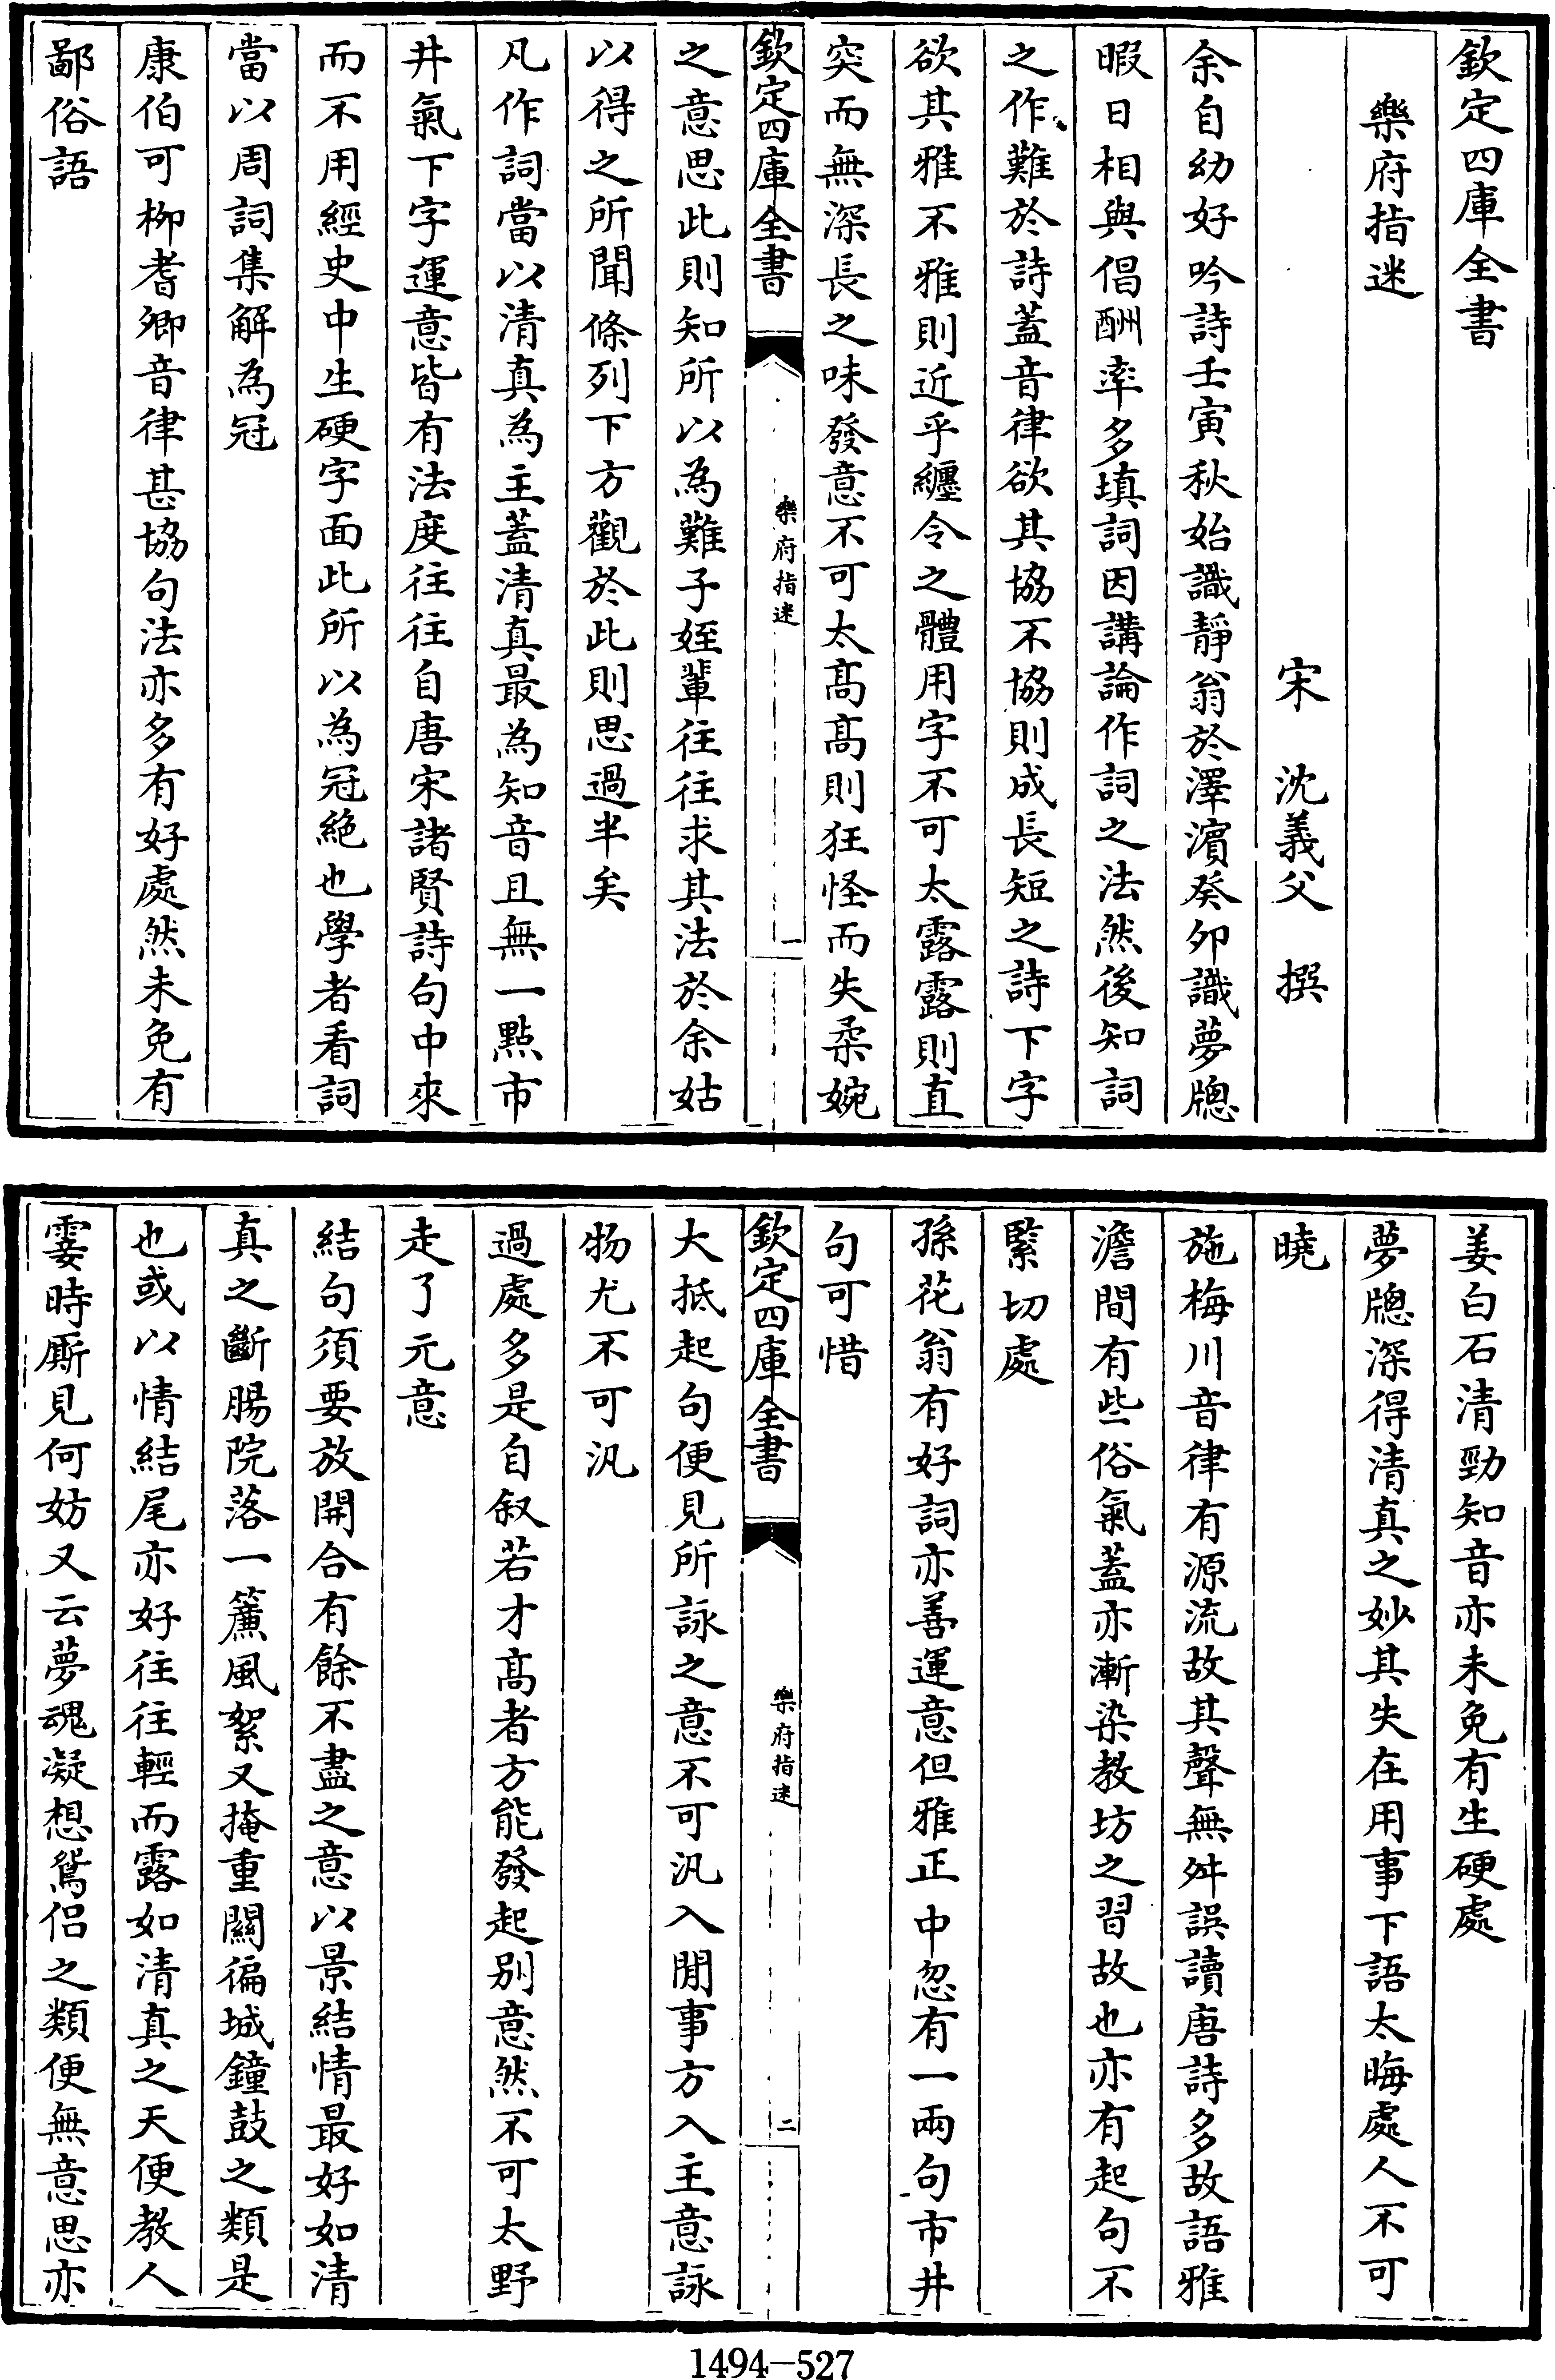 欽定四庫全書
樂府指迷
宋　沈義父　撰
余自幼好吟詩壬寅秋始識靜翁於澤濵癸夘識夢牎
暇日相與倡酬率多填詞因講論作詞之法然後知詞
之作難於詩蓋音律欲其協不協則成長短之詩下字
欲其雅不雅則近乎纒令之體用字不可太露露則直
突而無深長之味發意不可太髙髙則狂怪而失柔婉
欽定四庫全書
樂府指迷
一
之意思此則知所以為難子姪輩往往求其法於余姑
以得之所聞條列下方觀於此則思過半矣
凡作詞當以清真為主蓋清真最為知音且無一點市
井氣下字運意皆有法度往往自唐宋諸賢詩句中來
而不用經史中生硬字面此所以為冠絶也學者看詞
當以周詞集解為冠
康伯可柳耆卿音律甚協句法亦多有好處然未免有
鄙俗語
姜白石清勁知音亦未免有生硬處
夢牎深得清真之妙其失在用事下語太晦處人不可
曉
施梅川音律有源流故其聲無舛誤讀唐詩多故語雅
澹間有些俗氣蓋亦漸染教坊之習故也亦有起句不
緊切處
孫花翁有好詞亦善運意但雅正中忽有一兩句市井
句可惜
欽定四庫全書
樂府指迷
二
大抵起句便見所詠之意不可汎入閒事方入主意詠
物尤不可汎
過處多是自叙若才髙者方能發起别意然不可太野
走了元意
結句須要放開合有餘不盡之意以景結情最好如清
真之斷腸院落一簾風絮又掩重關徧城鐘鼓之類是
也或以情結尾亦好往往輕而露如清真之天便教人
霎時厮見何妨又云夢魂凝想鴛侣之類便無意思亦
1494—527